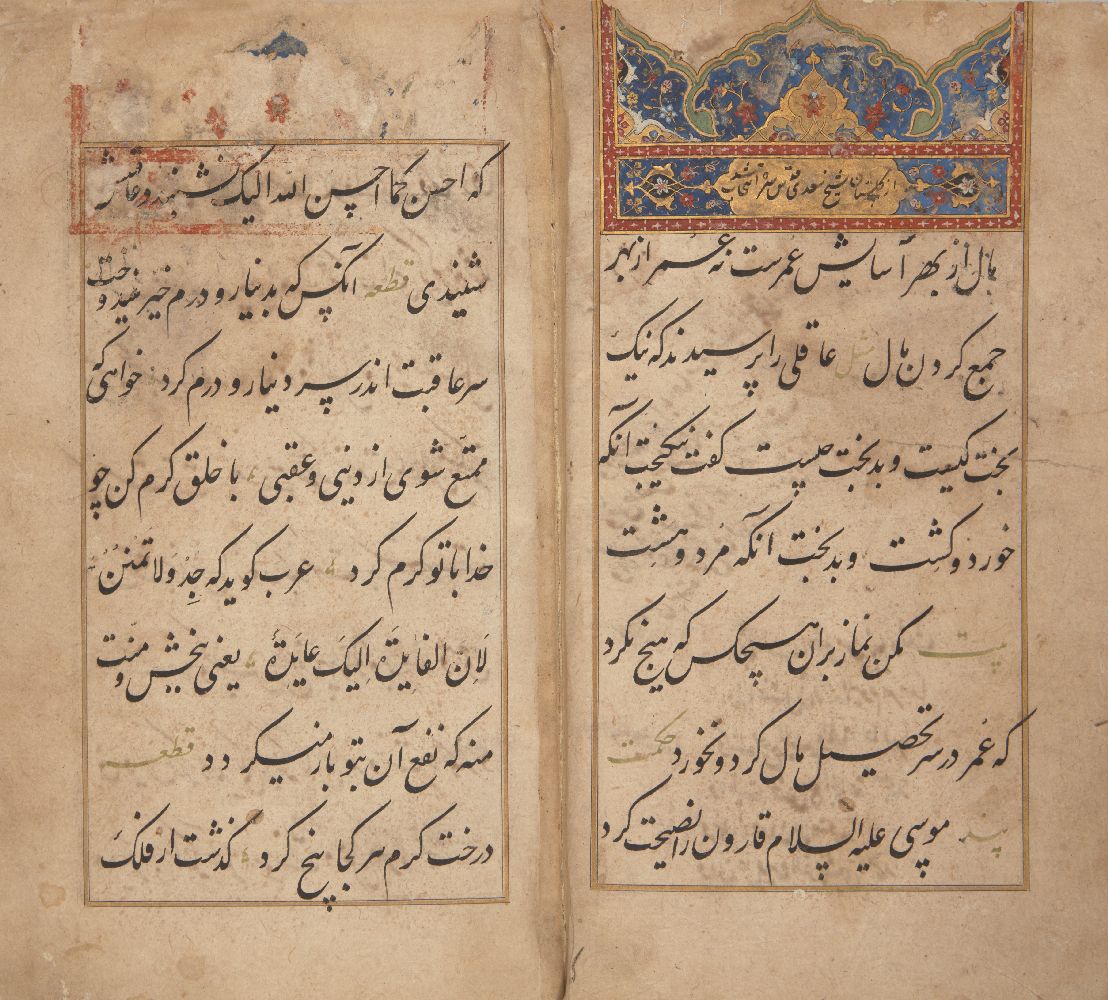 از گلستان شیخ سعدی قدس سره انتخاب شد
مال از بهر آسایش عمرست نه عمر از بهر
جمع کردن مال مثل عاقلی را پرسیدند که نیک
بخت کیست و بدبخت چیست گفت نیکبخت آنکه
خورد و کشت و بدبخت آنکه مُرد و هِشت
بیت مکن نماز بران هیچکس که هیچ نکرد
که عُمر در سر تحصیل مال کرد و نخورد حکمت
پند موسی علیه السلام قارون را نصیحت کرد
که احسن کما احسن الله الیک نشنید و عاقبتش
شنیدی قطعه آنکس که بدینار و درم خیر نیندوخت
سر عاقبت اندر سر دینار و درم کرد خواهی که
ممتّع شوی از دنیی و عقبی با خلق کرم کن چو
خدا با تو کرم کرد عرب کوید که جُدْ وَلا تَمنُنْ
لَاِنّ الفایدَة اِلیکَ عایدَةٌ یعنی ببخش و منّت
منه که نفع آن بتو باز میکردد قطعه
درخت کرم هر کجا بیخ کرد کذشت از فلک